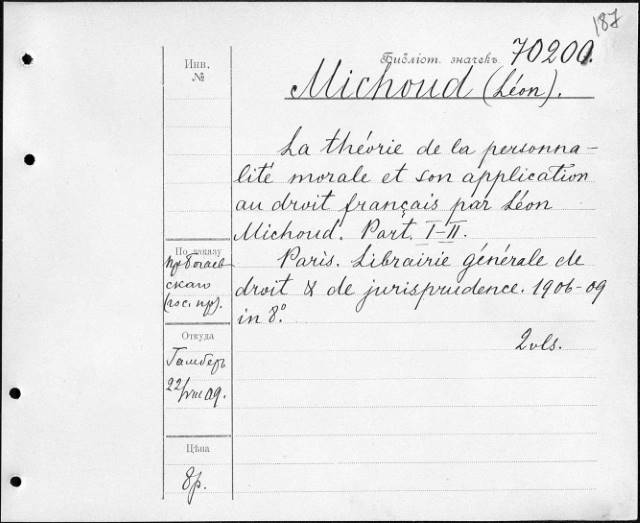 187
Библіот. значекъ 70200.
Инв.
№
Michoud (Léon).
La théorie de la personna-
lité morale et son application
au droit français par Léon
Michoud. Part. I-II.
Paris. Librairie générale de
droit & de jurisprudence. 1906-09
in 8°.
2 vls.
По заказу
пр. Богаев
скаго
(гос. пр).
Откуда
Гамберъ
22/VIII 09.
Цѣна
8р.